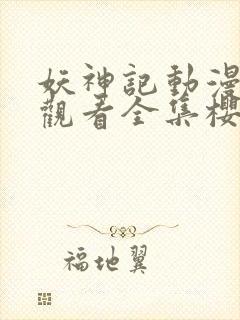 妖神記動漫
觀看全集櫻
福地翼